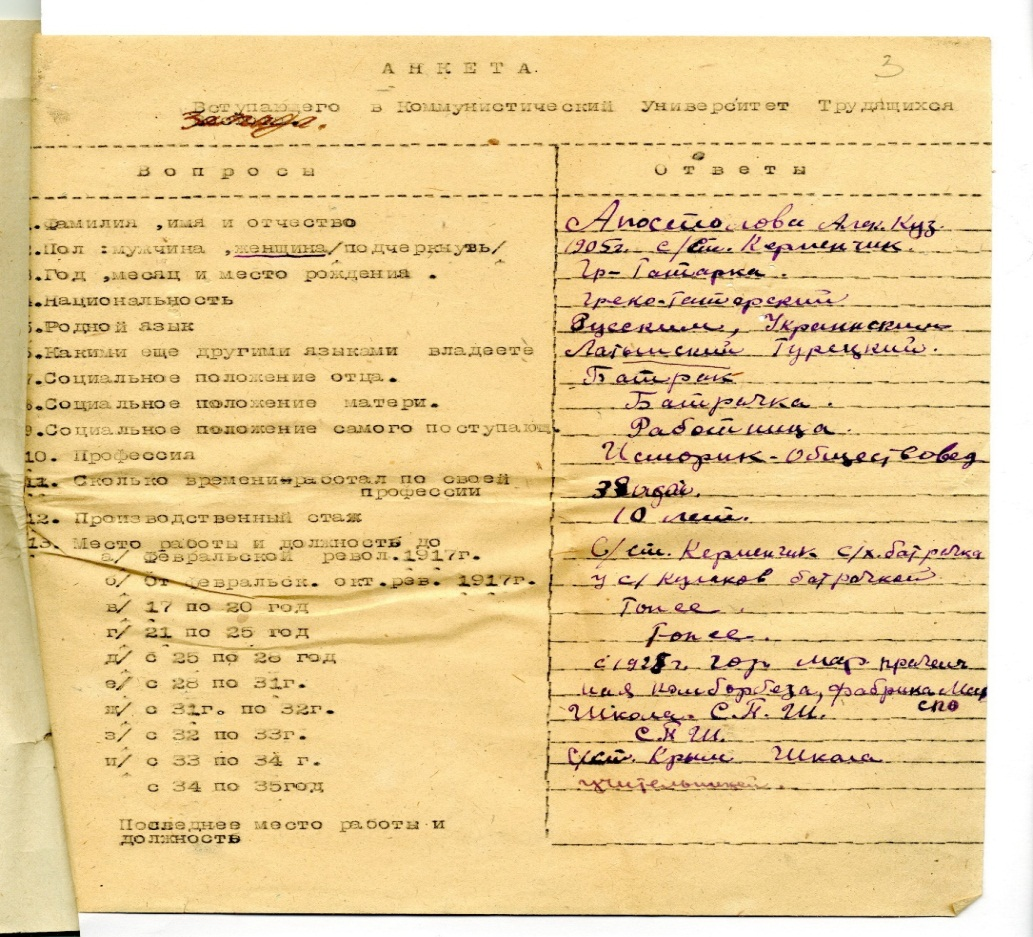 3
АНКЕТА.
Вступающего в Коммунистический Университет Трудящихся
Запада.
Вопросы Ответы
1.Фамилия ,имя и отчество Апостолова Алек. Куз.
2.Пол :мужчина ,женщина/подчеркнуть/ 1905г. с/ст. Керменчик.
3.Год ,месяц и место рождения . Гр-Татарка.
4.Национальность Греко-татарский
5.Родной язык Русским, Украинским
6.Какими еще другими языками владеете Латышский Турецкий.
7.Социальное положение отца. Батрак
8.Социальное положение матери. Батрачка.
9.Социальное положение самого поступающ. Работница.
10. Профессия Историк-Обществовед
11. Сколько времени работал по своей
профессии 3 года.
12. Производственный стаж 10 лет.
13. Место работы и должность до
а/ Февральской револ.1917г. С/ст. Керменчик с/х.батрачка
б/ От февральск. окт.рев. 1917г. у с/ кулаков батрачкой
в/ 17 по 20 год Тоже.
г/ 21 по 25 год Тоже.
д/ с 25 по 28 год с 1928г. гор. Мар прачеч
е/ с 28 по 31г. ная комборбеза, фабрика Мар
спо
ж/ с 31г. по 32г. Школа. С.П.Ш.
з/ с 32 по 33г. С П Ш
и/ с 33 по 34 г. с/ст. Крым Школа
с 34 по 35год учительницей.
Последнее место работы и
должность